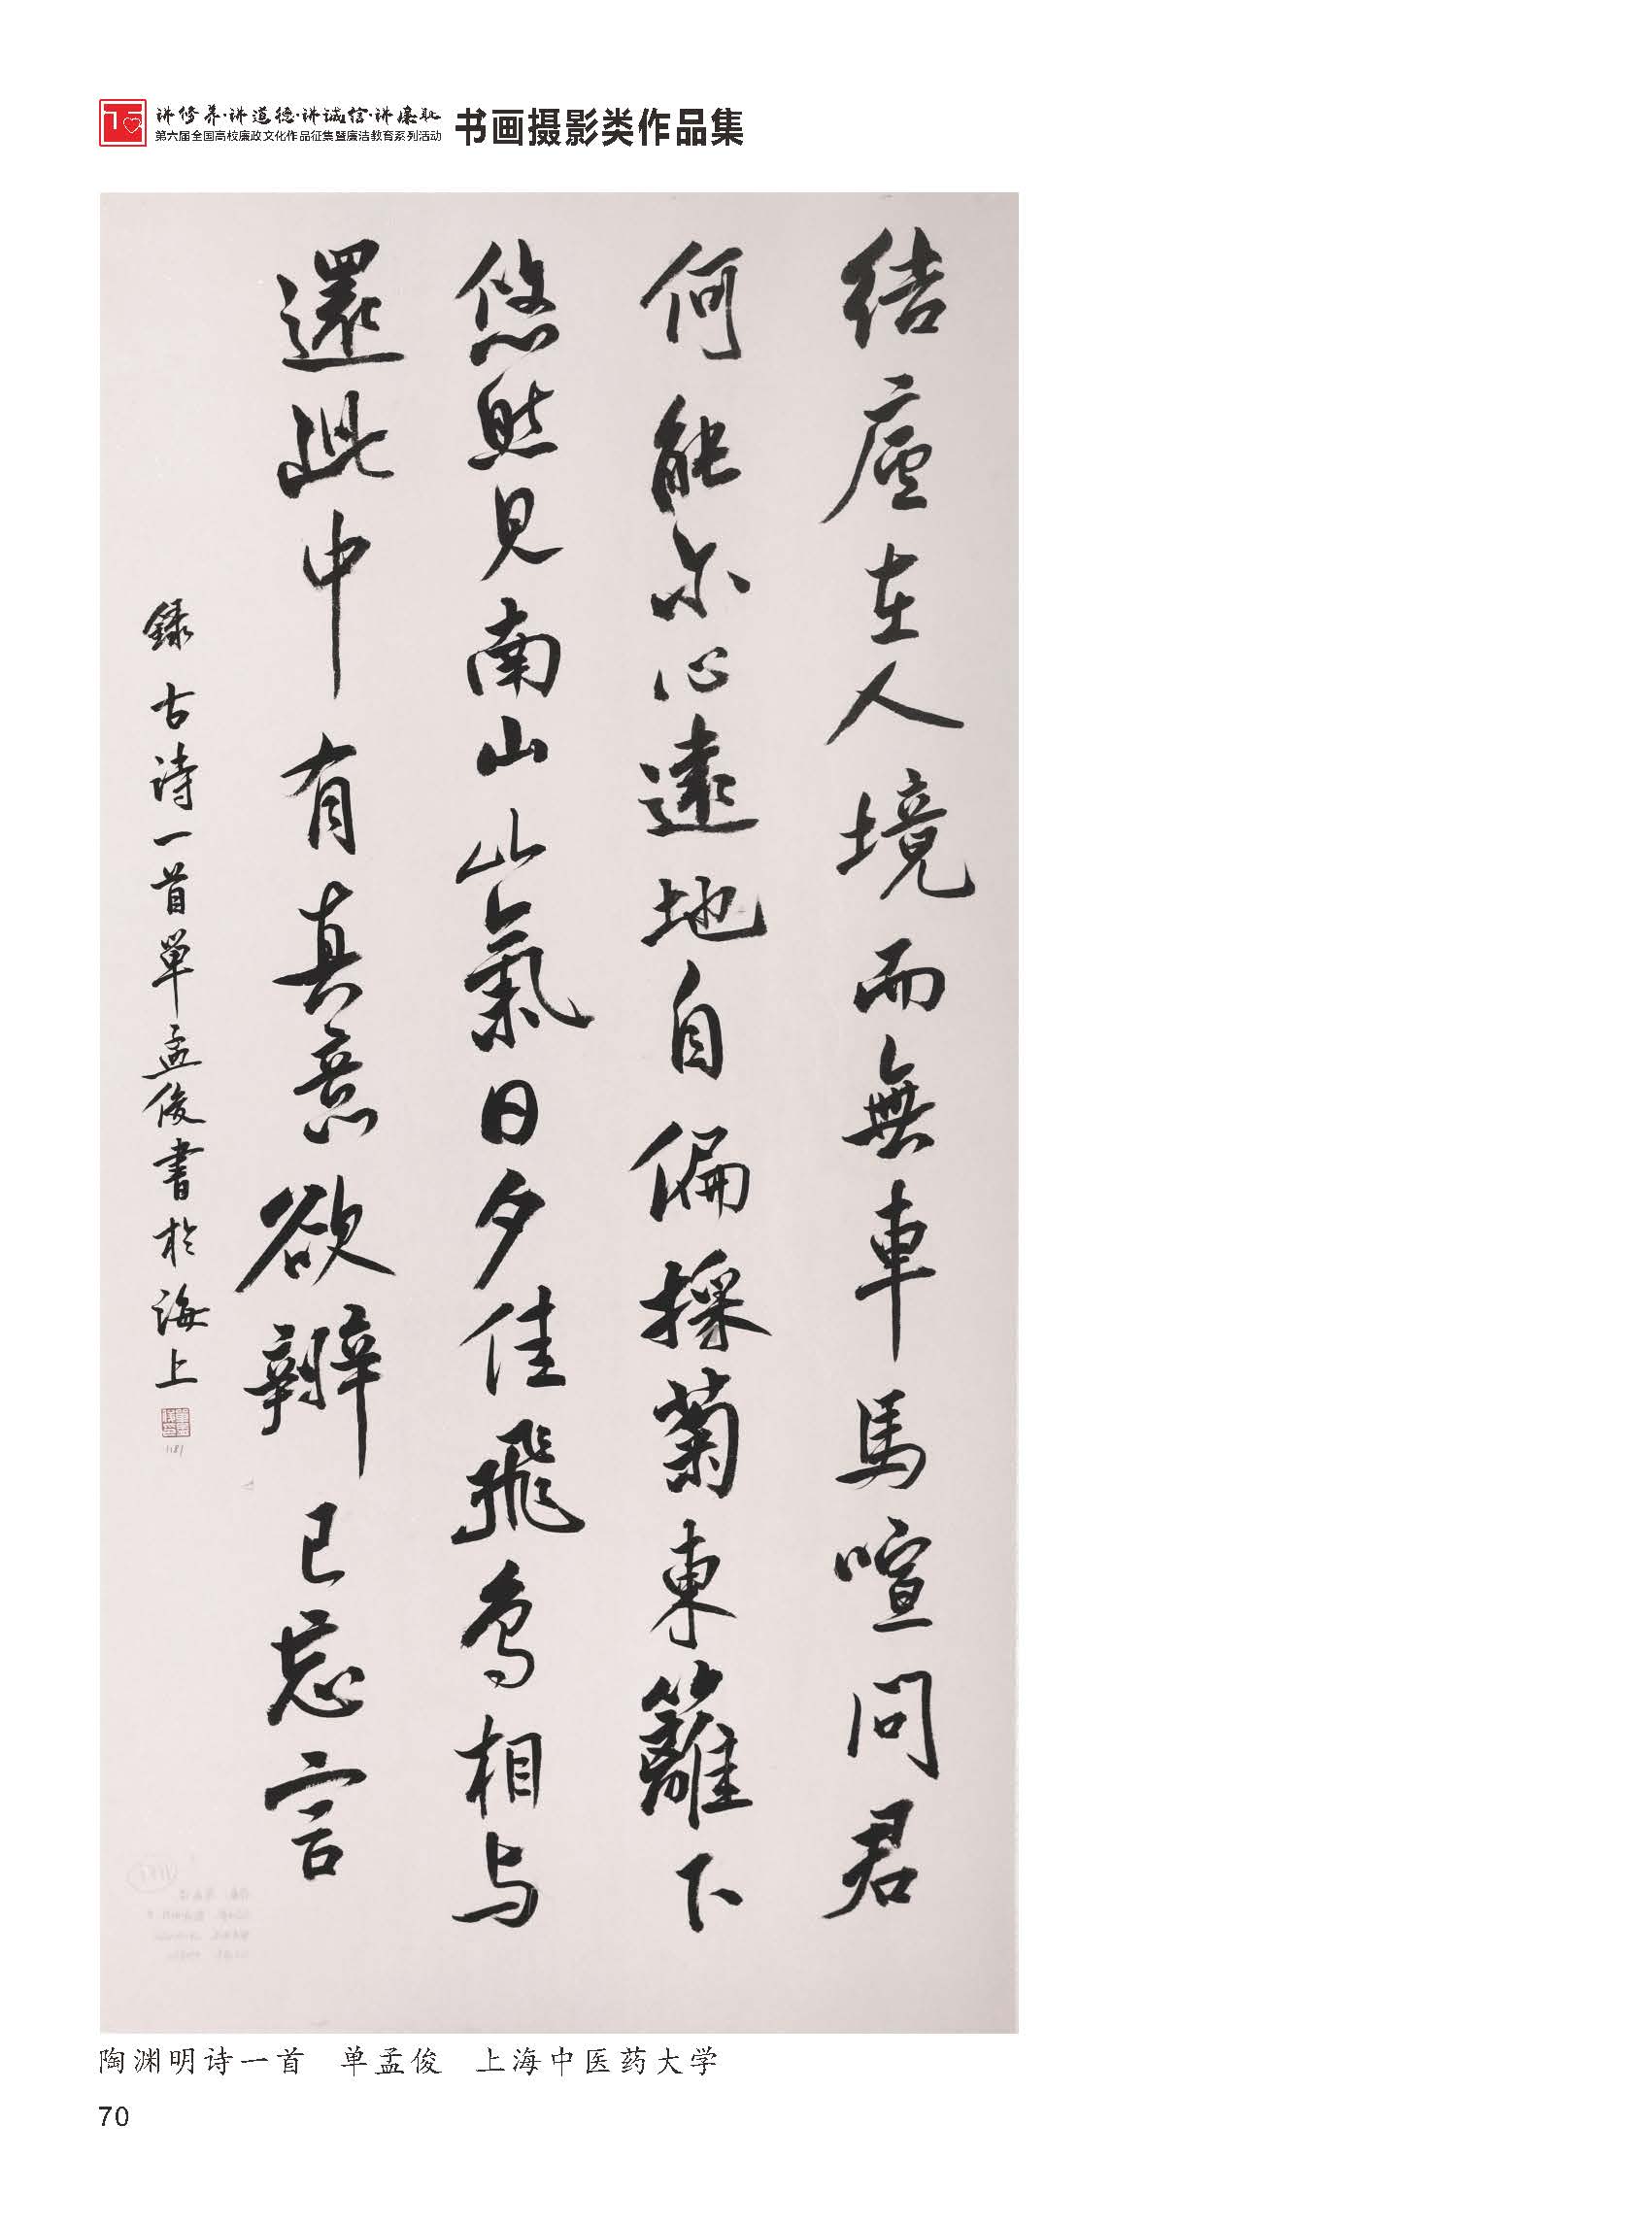 讲修养·讲道德·讲诚信·讲廉耻
第六届全国高校廉政文化作品征集暨廉洁教育系列活动
书画摄影类作品集
结廬在人境而無車馬喧問君
何能尔心遠地自偏採菊東籬下
悠然見南山山氣日夕佳飛鳥相与
還此中有真意欲辨已忘言
録古诗一首單孟俊書於海上
1181
陶渊明诗一首 单孟俊 上海中医药大学
70